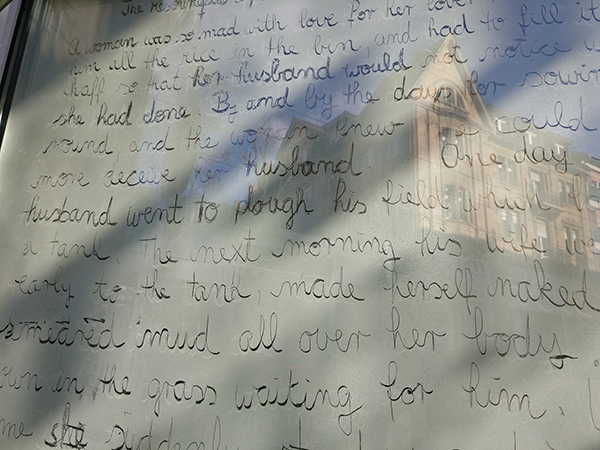 The resourceful
A woman was so mad with love for her lover
him all the rice in the bin, and had to fill it
chaff so that her husband would not notice w
she had done. By and by the days for sowin
round and the woman knew she could
more deceive her husband One day
husband went to plough his field which
a tank. The next morning his wife we
early to the tank, made herself naked
smeared mud all over her body
own in the grass waiting for him.
me she suddenly